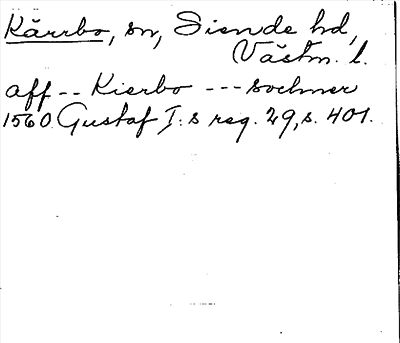 Kärrbo, sn, Siende hd,
Västm. l.
aff -- Kierbo --- sochner
1560 Gustaf I:s reg. 29, s. 401.